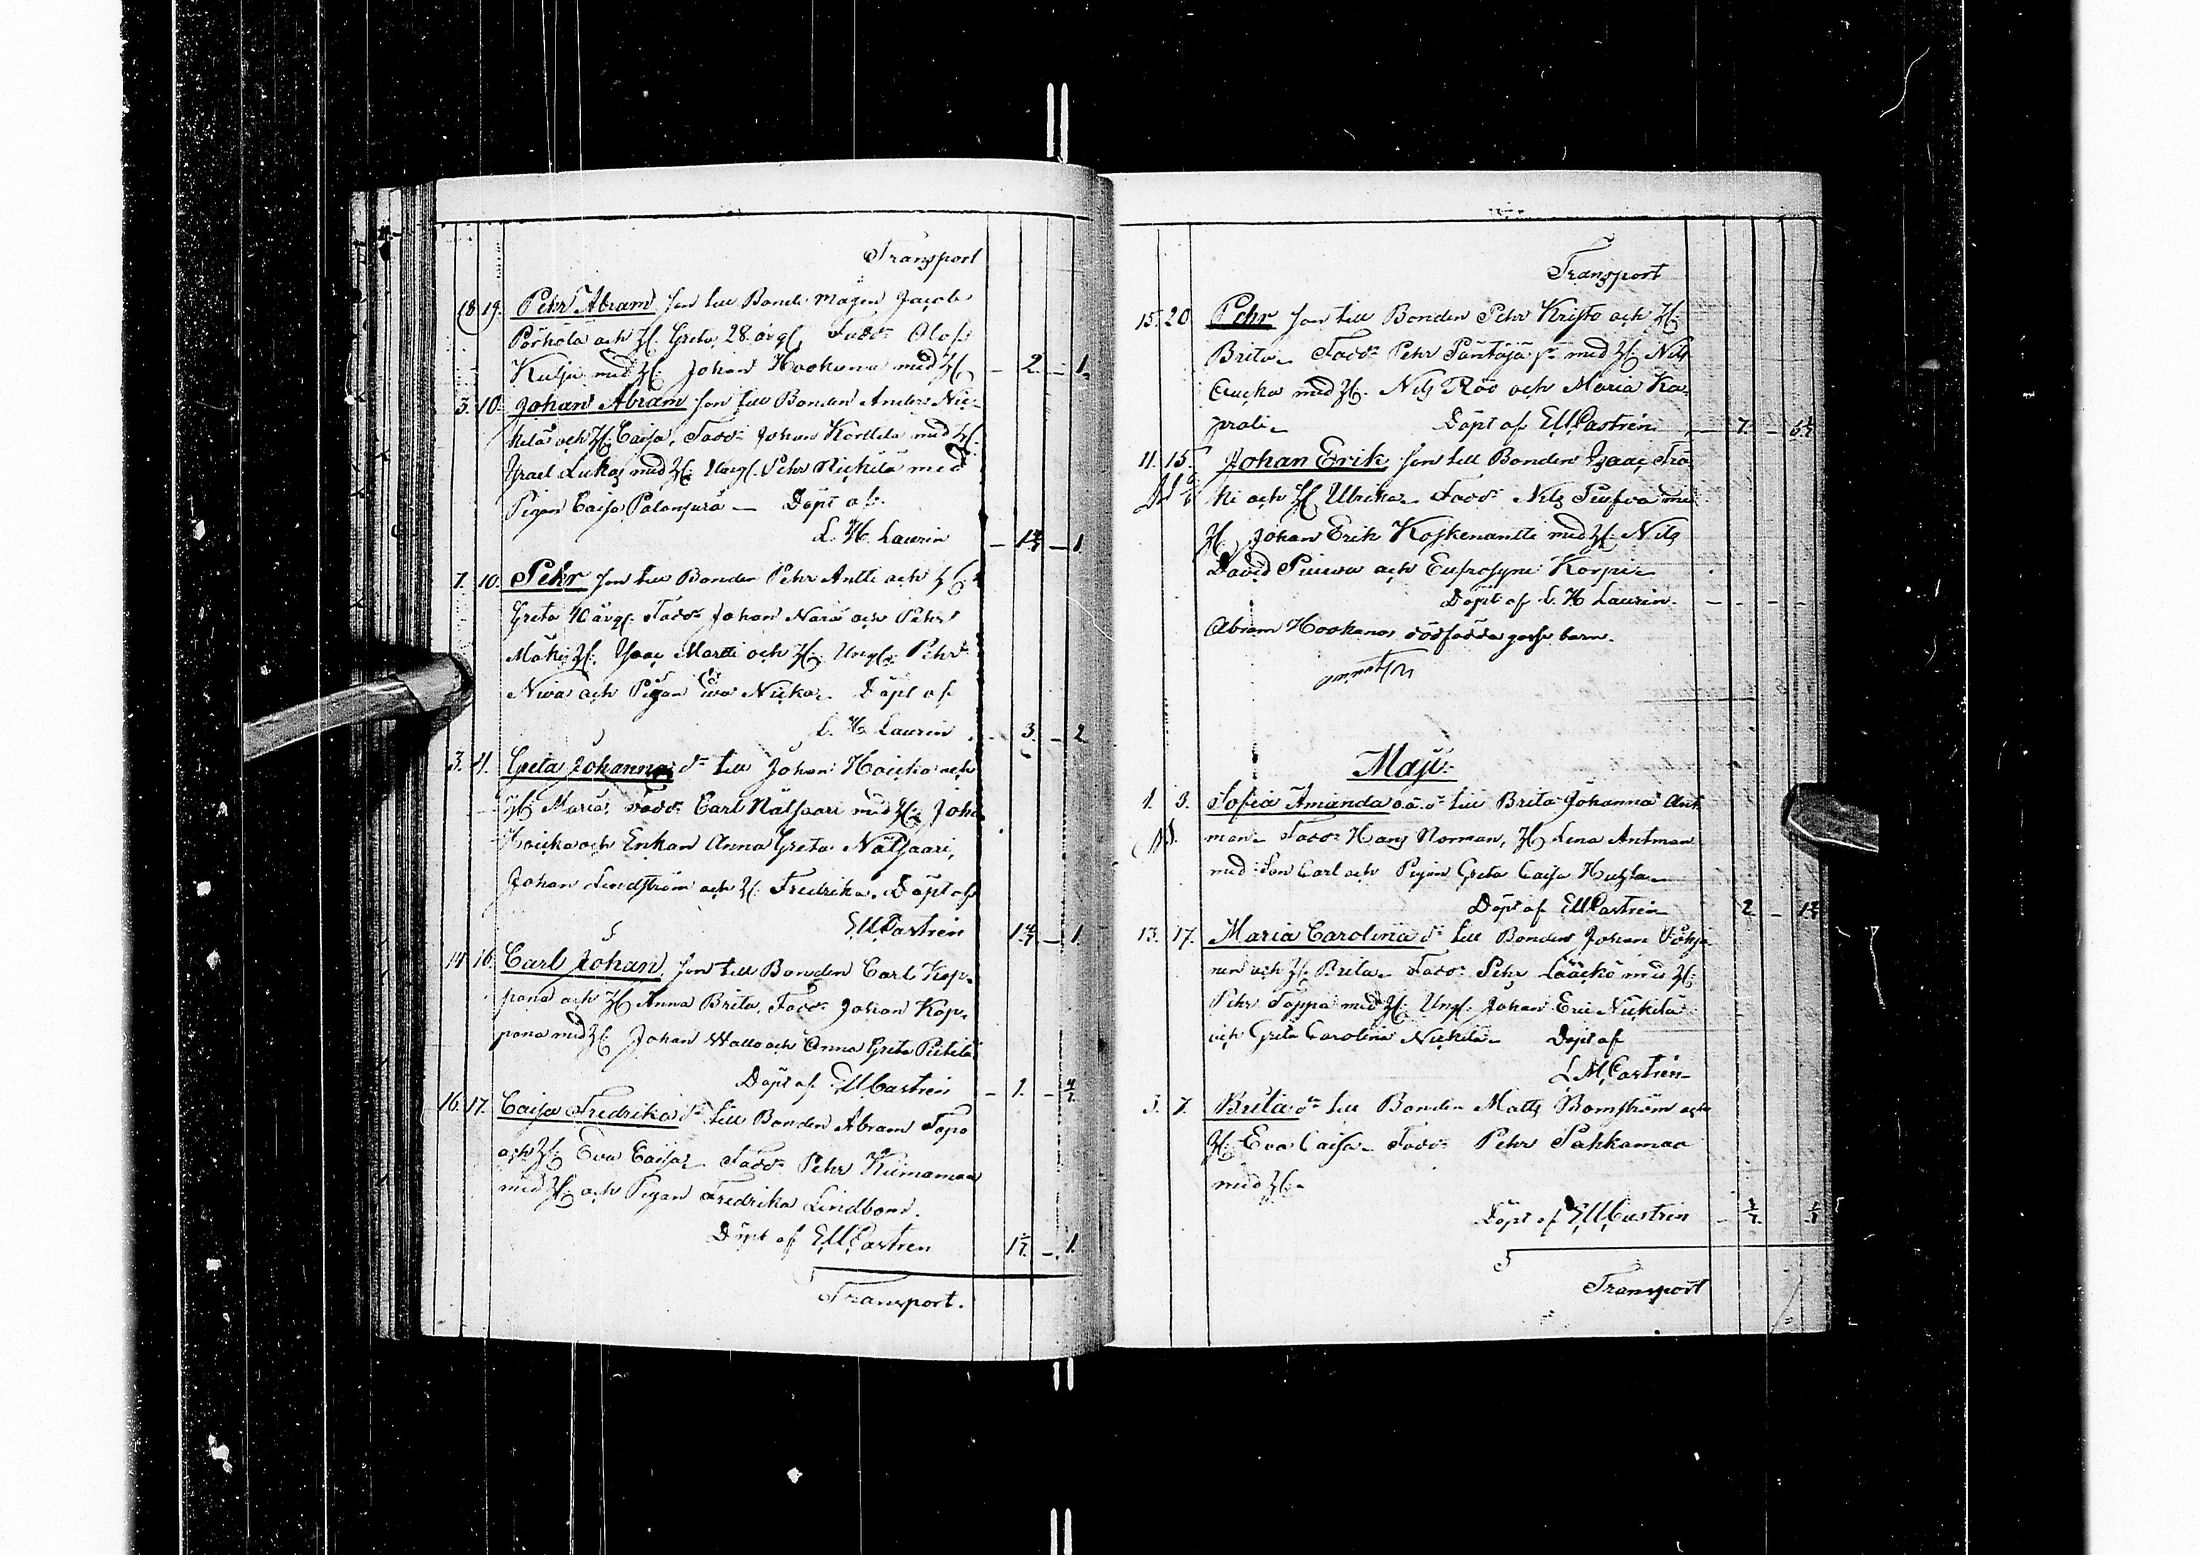 Transport
18 19. Pehr Abram son till Bonde mågen Jacob
Pörhölä och H: Greta 28. årg. Fadd: Olof
Kulju med H: Johan Hookana med H: – 2. – 1.
3. 10. Johan Abram son till Bonden Anders Nic-
kilä och H: Caisa, Fadd: Johan Korttila med H:
Israel Lukas med H: Ungk. Pehr Nickilä med
Pigan Caisa Palonperä – Döpt af
L. H. Laurin – 1 4/7 – 1
7. 10. Pehr son till Bonden Pehr Antti och H:
Greta 40 årg. Fadd: Johan Nara och Pehr
Mäki H: Isaac Martti och H: Ungk: Pehr
Niva och Pigan Eva Nicka. Döpt af
L. H. Laurin – 3. – 2
3. 11. Greta Johanna d:r till Johan Hoicka och
H: Maria, Fadd: Carl Nätsaari med H: Johan
Hoicka och Enkan Anna Greta Nätsaari,
Johan Lindström och H: Fredrika. Döpt af
EM Castrén 1 4/7 – 1.
14 16. Carl Johan son till Bonden Carl Kop-
pana och H: Anna Brita, Fadd: Johan Kop-
pana med H: Johan Wallo och Anna Greta Pietilä
Döpt af EM Castrén – 1. – 4/7
16. 17. Caisa Fredrika d:r till Bonden Abram Tapo
och H: Eva Caisa. Fadd: Pehr Kiimamaa
med H: och Pigan Fredrika Lindbom.
Döpt af EM Castren 1 – 1.
Transport.
Transport
15. 20. Pehr son till Bonden Pehr Kristo och H:
Brita. Fadd: Pehr Säntäjä med H: Nils
Cucka med H: Nils Röö och Maria Ka-
prali – Döpt af EM Castrén – 7. –
11. 15. Johan Erik son till Bonden Isaac
ki och H: Ulrika. Fadd: Nils med
H: Johan Erik Koskenantti med H: Nils
David Piuva och Eufrosyne Korpi –
Döpt af L. H. Laurin. – – – –
Abram Hookanas dödfödda gosse barn.
Maji:
1. 3. Sofia Amanda o.ä. d:r till Brita Johanna Ant-
man. Fadd: Hans Norman, H: Lena Antman
med Son Carl och Pigan Greta Caisa
Döpt af EM Castrén 2 –
13. 17. Maria Carolina d:r till Bonden Johan
nen och H: Brita. Fadd: Pehr Lääckö med H:
Pehr Toppa med H: Ungk: Johan Eric Nickilä
och Greta Carolina Nickilä. Döpt af
EM Castrén
3. 7. Brita d:r till Bonden Matts Bomström och
H: Eva Caisa. Fadd: Pehr Pahkamaa
med H:
Döpt af EM Castrén –
Transport